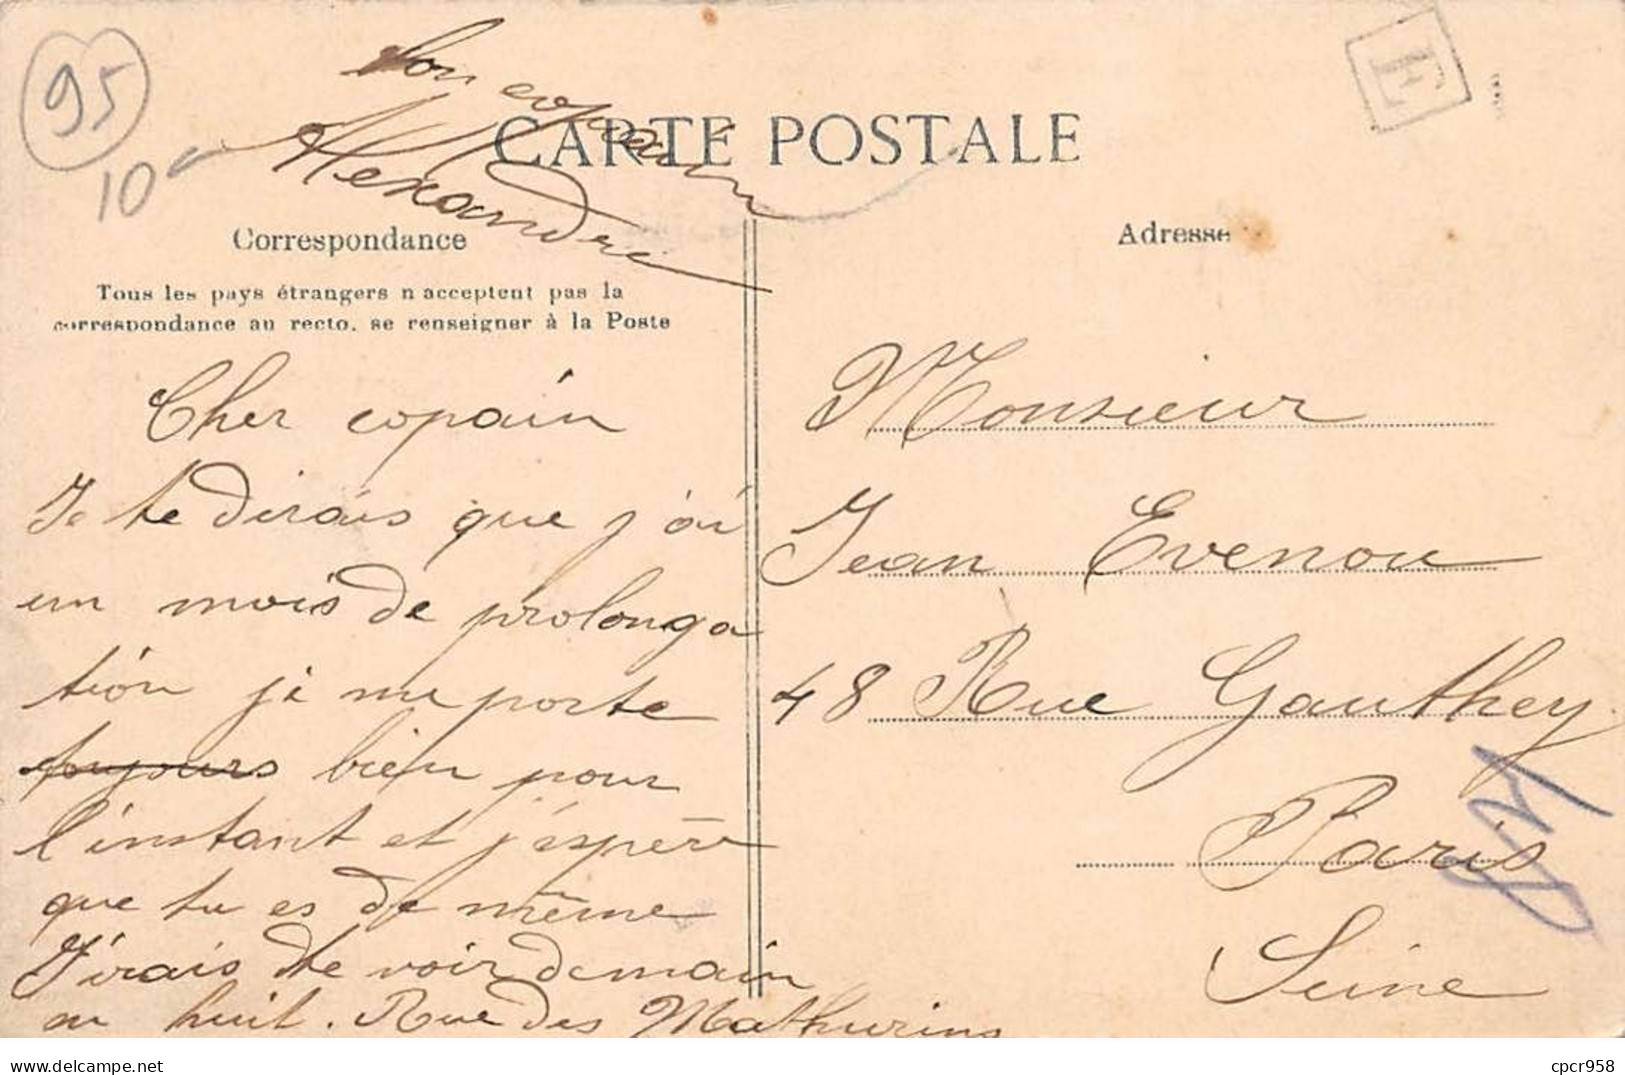 95
10
ton copain
Alexandre
E
CARTE POSTALE
Correspondance
Adresse
Tous les pays étrangers n'acceptent pas la
correspondance au recto, se renseigner à la Poste
Cher copain
Je te dirais que j'ai
un mois de prolonga
tion je me porte
toujours bien pour
l'instant et j'éspère
que tu es de même
J'irais te voir demain
au huit. Rue des Mathurins
Monsieur
Jean Evenou
48 Rue Gauthey
Paris
Seine
cpcr958